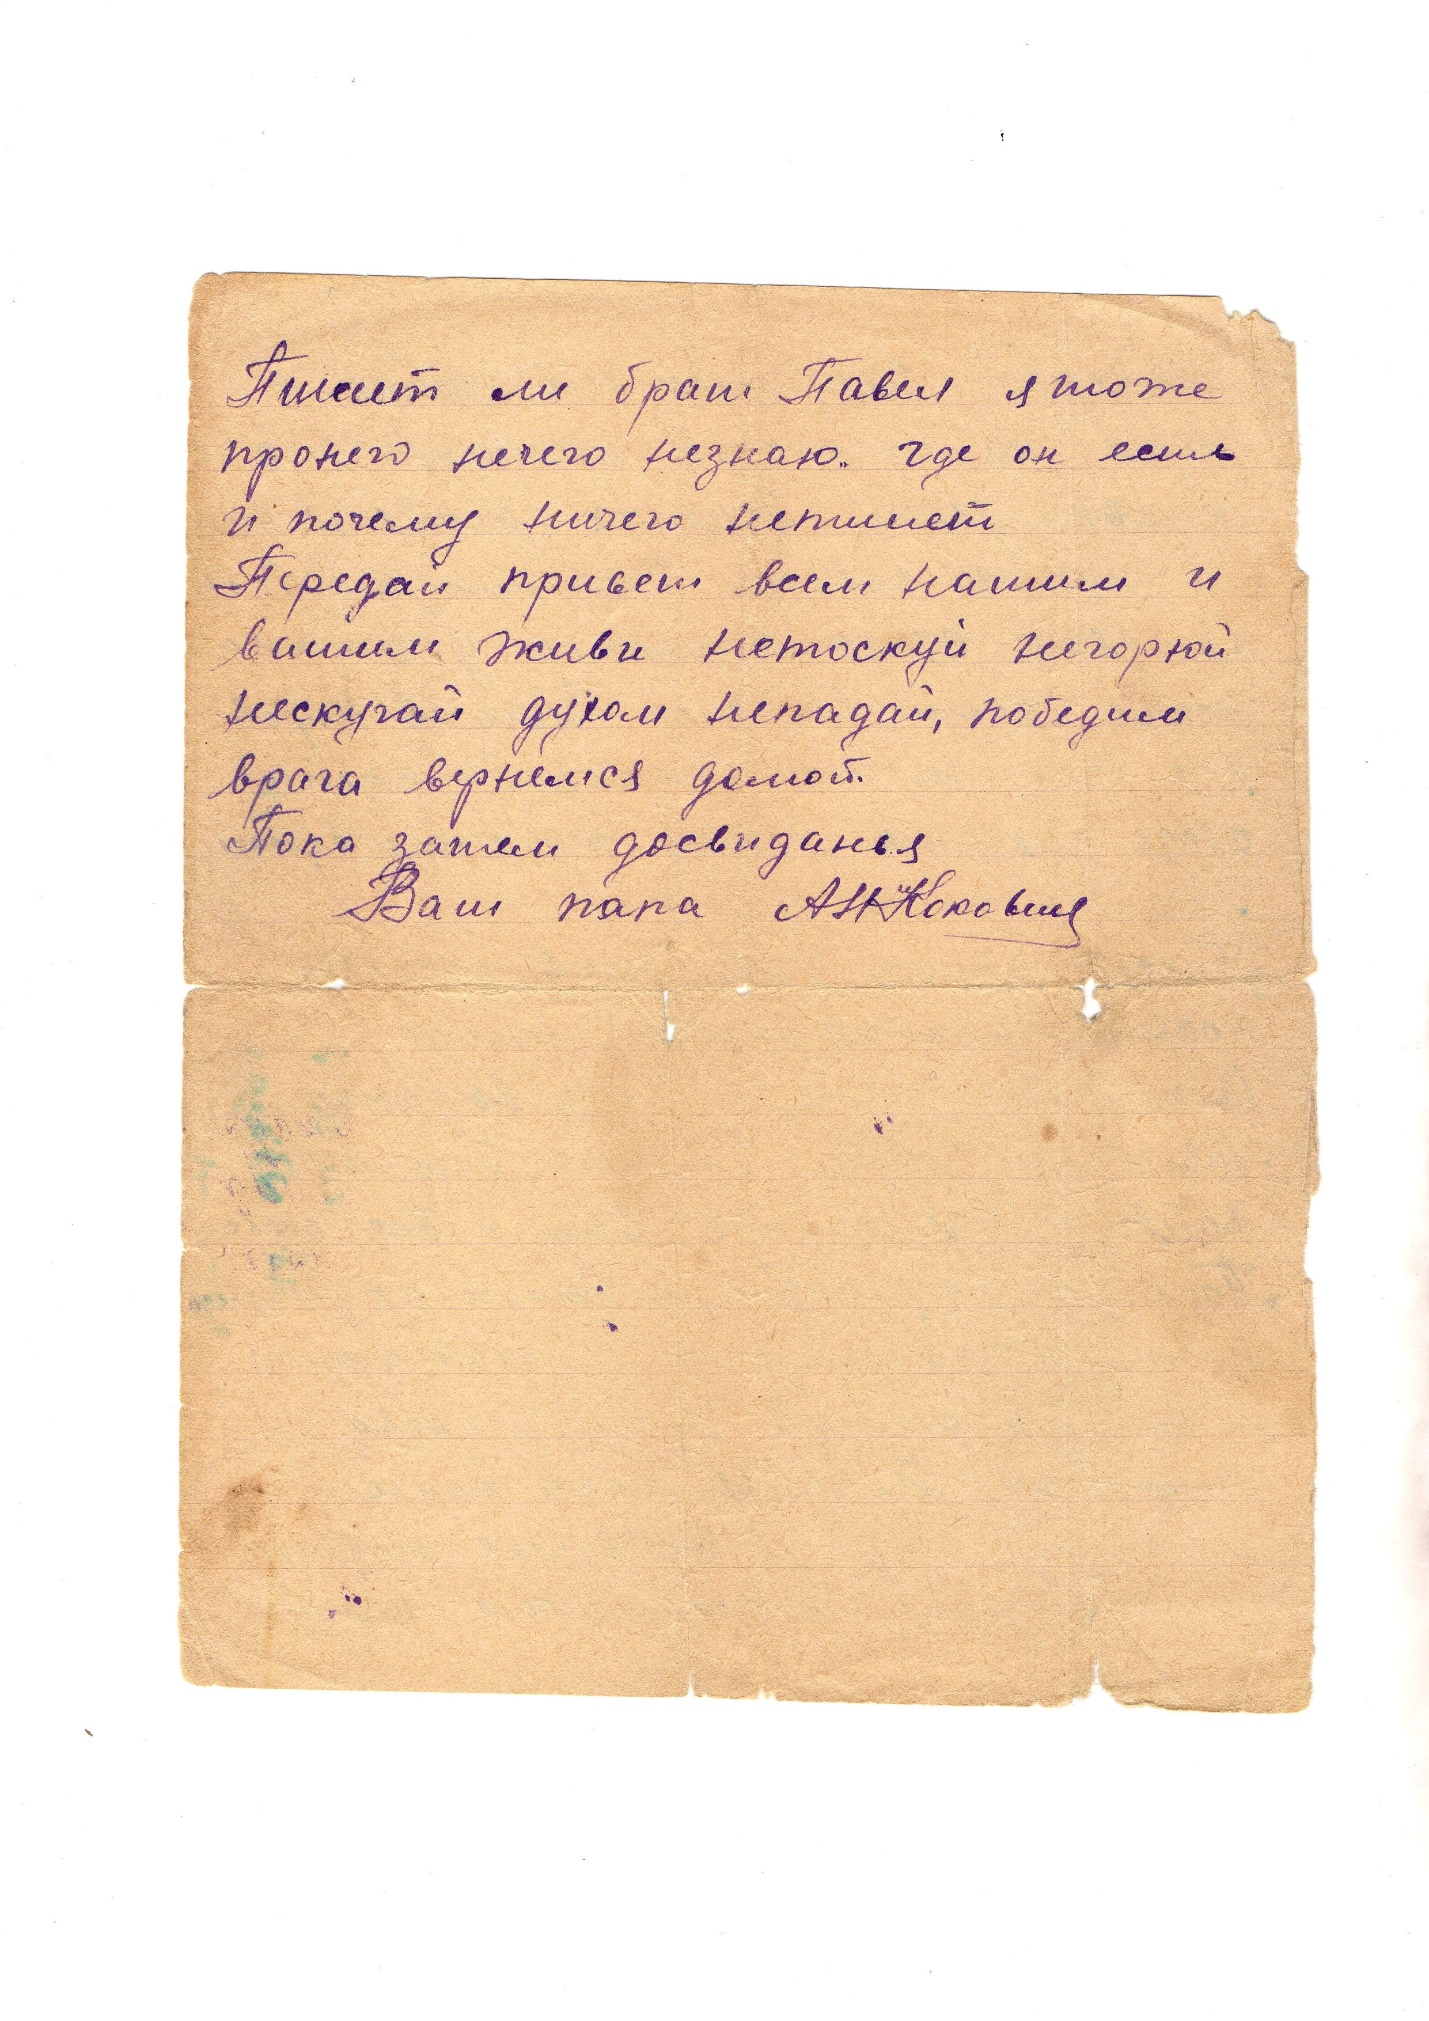 Пишит ли брат Павел я тоже
пронего нечего незнаю. где он есть
и почему ничего непишет
Передай привет всем нашим и
вашим живи нетоскуй негорюй
нескучай духом непадай, победим
врага вернемся домой.
Пока затем досвиданья
Ваш папа